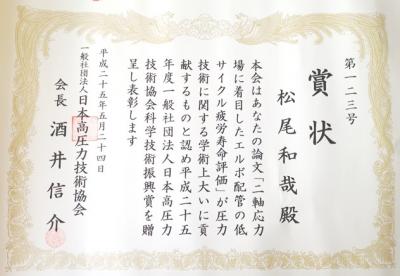 第一二三号
賞状
松尾和哉殿
本会はあなたの論文「二軸応力
場に着目したエルボ配管の低
サイクル疲労寿命評価」が圧力
技術に関する学術上大いに貢
献するものと認め平成二十五
年度一般社団法人日本高圧力
技術協会科学技術振興賞を贈
呈し表彰します
平成二十五年五月二十四日
一般社団法人日本高圧力技術協会
会長 酒井信介